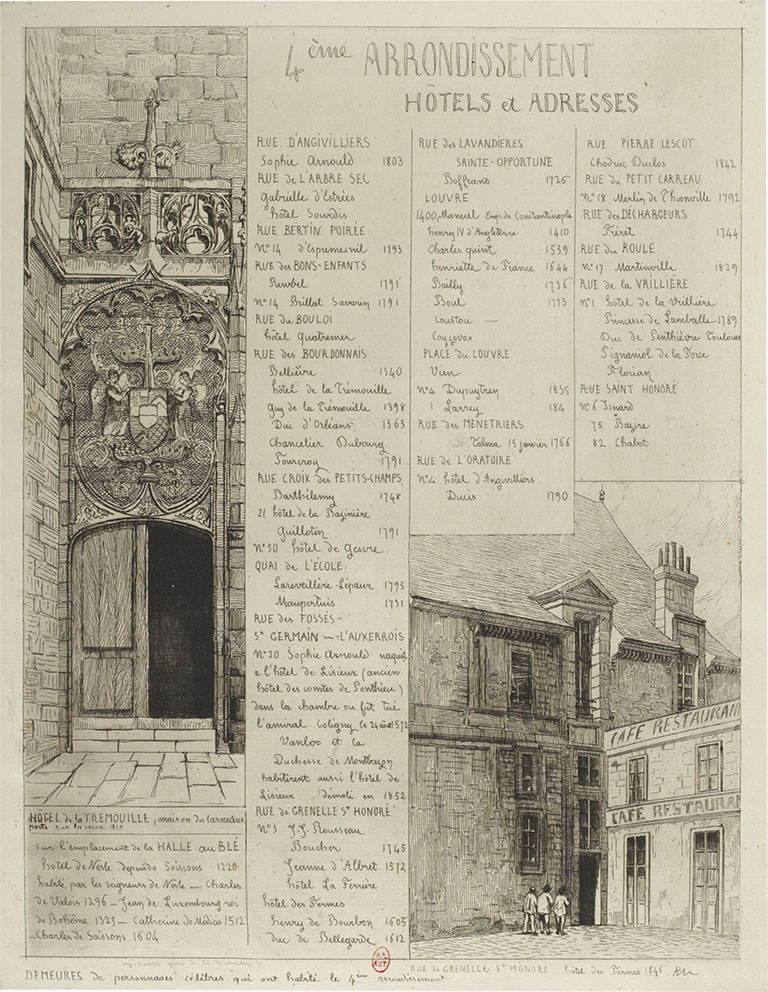 4ème ARRONDISSEMENT
HÔTELS et ADRESSES
RUE D'ANGIVILLIERS
Sophie Arnould 1803
RUE de L'ARBRE SEC
Gabrielle d'Estrées
hôtel Sourdis
RUE BERTIN POIRÉE
N° 14 d'Espremesnil 1793
RUE des BONS-ENFANTS
Rewbel 1791
N° 14 Brillat Savarin 1791
RUE du BOULOI
hôtel Quatremer
RUE des BOURDONNAIS
Bellièvre 1340
hôtel de la Trémouille
Guy de la Trémouille 1398
Duc d'Orléans 1363
Chancelier Dubourg
Fourcroy 1791
RUE CROIX des PETITS-CHAMPS
Barthélemy 1748
21 hôtel de la Bazinière
Guillotin 1791
N° 30 hôtel de Gesvre
QUAI de L'ÉCOLE
Lareveillère-Lépaux 1793
Maupertuis 1731
RUE des FOSSÉS-
St GERMAIN - L'AUXERROIS
N° 20 Sophie Arnould naquit
a l'hôtel de Lisieux (ancien
hôtel des comtes de Ponthieu)
dans la chambre ou fut tué
l'amiral Coligny le 24 août 1572
Vanloo et la
Duchesse de Montbazon
habitèrent aussi l'hôtel de
Lisieux démoli en 1852
RUE de GRENELLE St HONORÉ
N° 3 J.J. Rousseau
Boucher 1745
Jeanne d'Albret 1572
hôtel La Ferrière
hôtel des Fermes
henry de Bourbon 1605
duc de Bellegarde 1612
RUE des LAVANDIERES
SAINTE-OPPORTUNE
Boffrand 1726
LOUVRE
1400, Manuel Emp. de Constantinople
henry IV d'Angleterre 1410
Charles quint 1539
henriette de France 1644
Bailly 1736
Boul 1773
Coustou —
Coyzevox
PLACE du LOUVRE
Vien
N° 4 Dupuytren 1835
1 Larrey 184
RUE des MENETRIERS
Talma 15 janvier 1766
RUE de L'ORATOIRE
N° 4 hôtel d'Angivilliers
Ducis 1790
RUE PIERRE LESCOT
Chodruc Duclos 1842
RUE du PETIT CARREAU
N° 18 Merlin de Thionville 1792
RUE des DÉCHARGEURS
Fréret 1744
RUE du ROULE
N° 17 Martinville 1829
RUE de la VRILLIERE
N° 1 hôtel de la Vrillière
Princesse de Lamballe 1789
Duc de Penthièvre Toulouse
Piganiol de la Force
Florian
RUE SAINT HONORÉ
N° 6 Isnard
75 Bazire
82 Chabot
CAFÉ RESTAURAN
CAFÉ RESTAURAN
HÔTEL de la TREMOUILLE, maison du Carnetier
porte sur la cour
sur l'emplacement de la HALLE au BLÉ
hotel de Nesle depuis de Soissons 1220
habité par les seigneurs de Nesle — Charles
de Valois 1296 — Jean de Luxembourg roi
de Bohême 1325 — Catherine de Médicis 1512
Charles de Soissons 1604
RUE de GRENELLE St HONORÉ hôtel des Fermes 1846
DEMEURES de personnages célèbres qui ont habité le 4ème arrondissement
EST